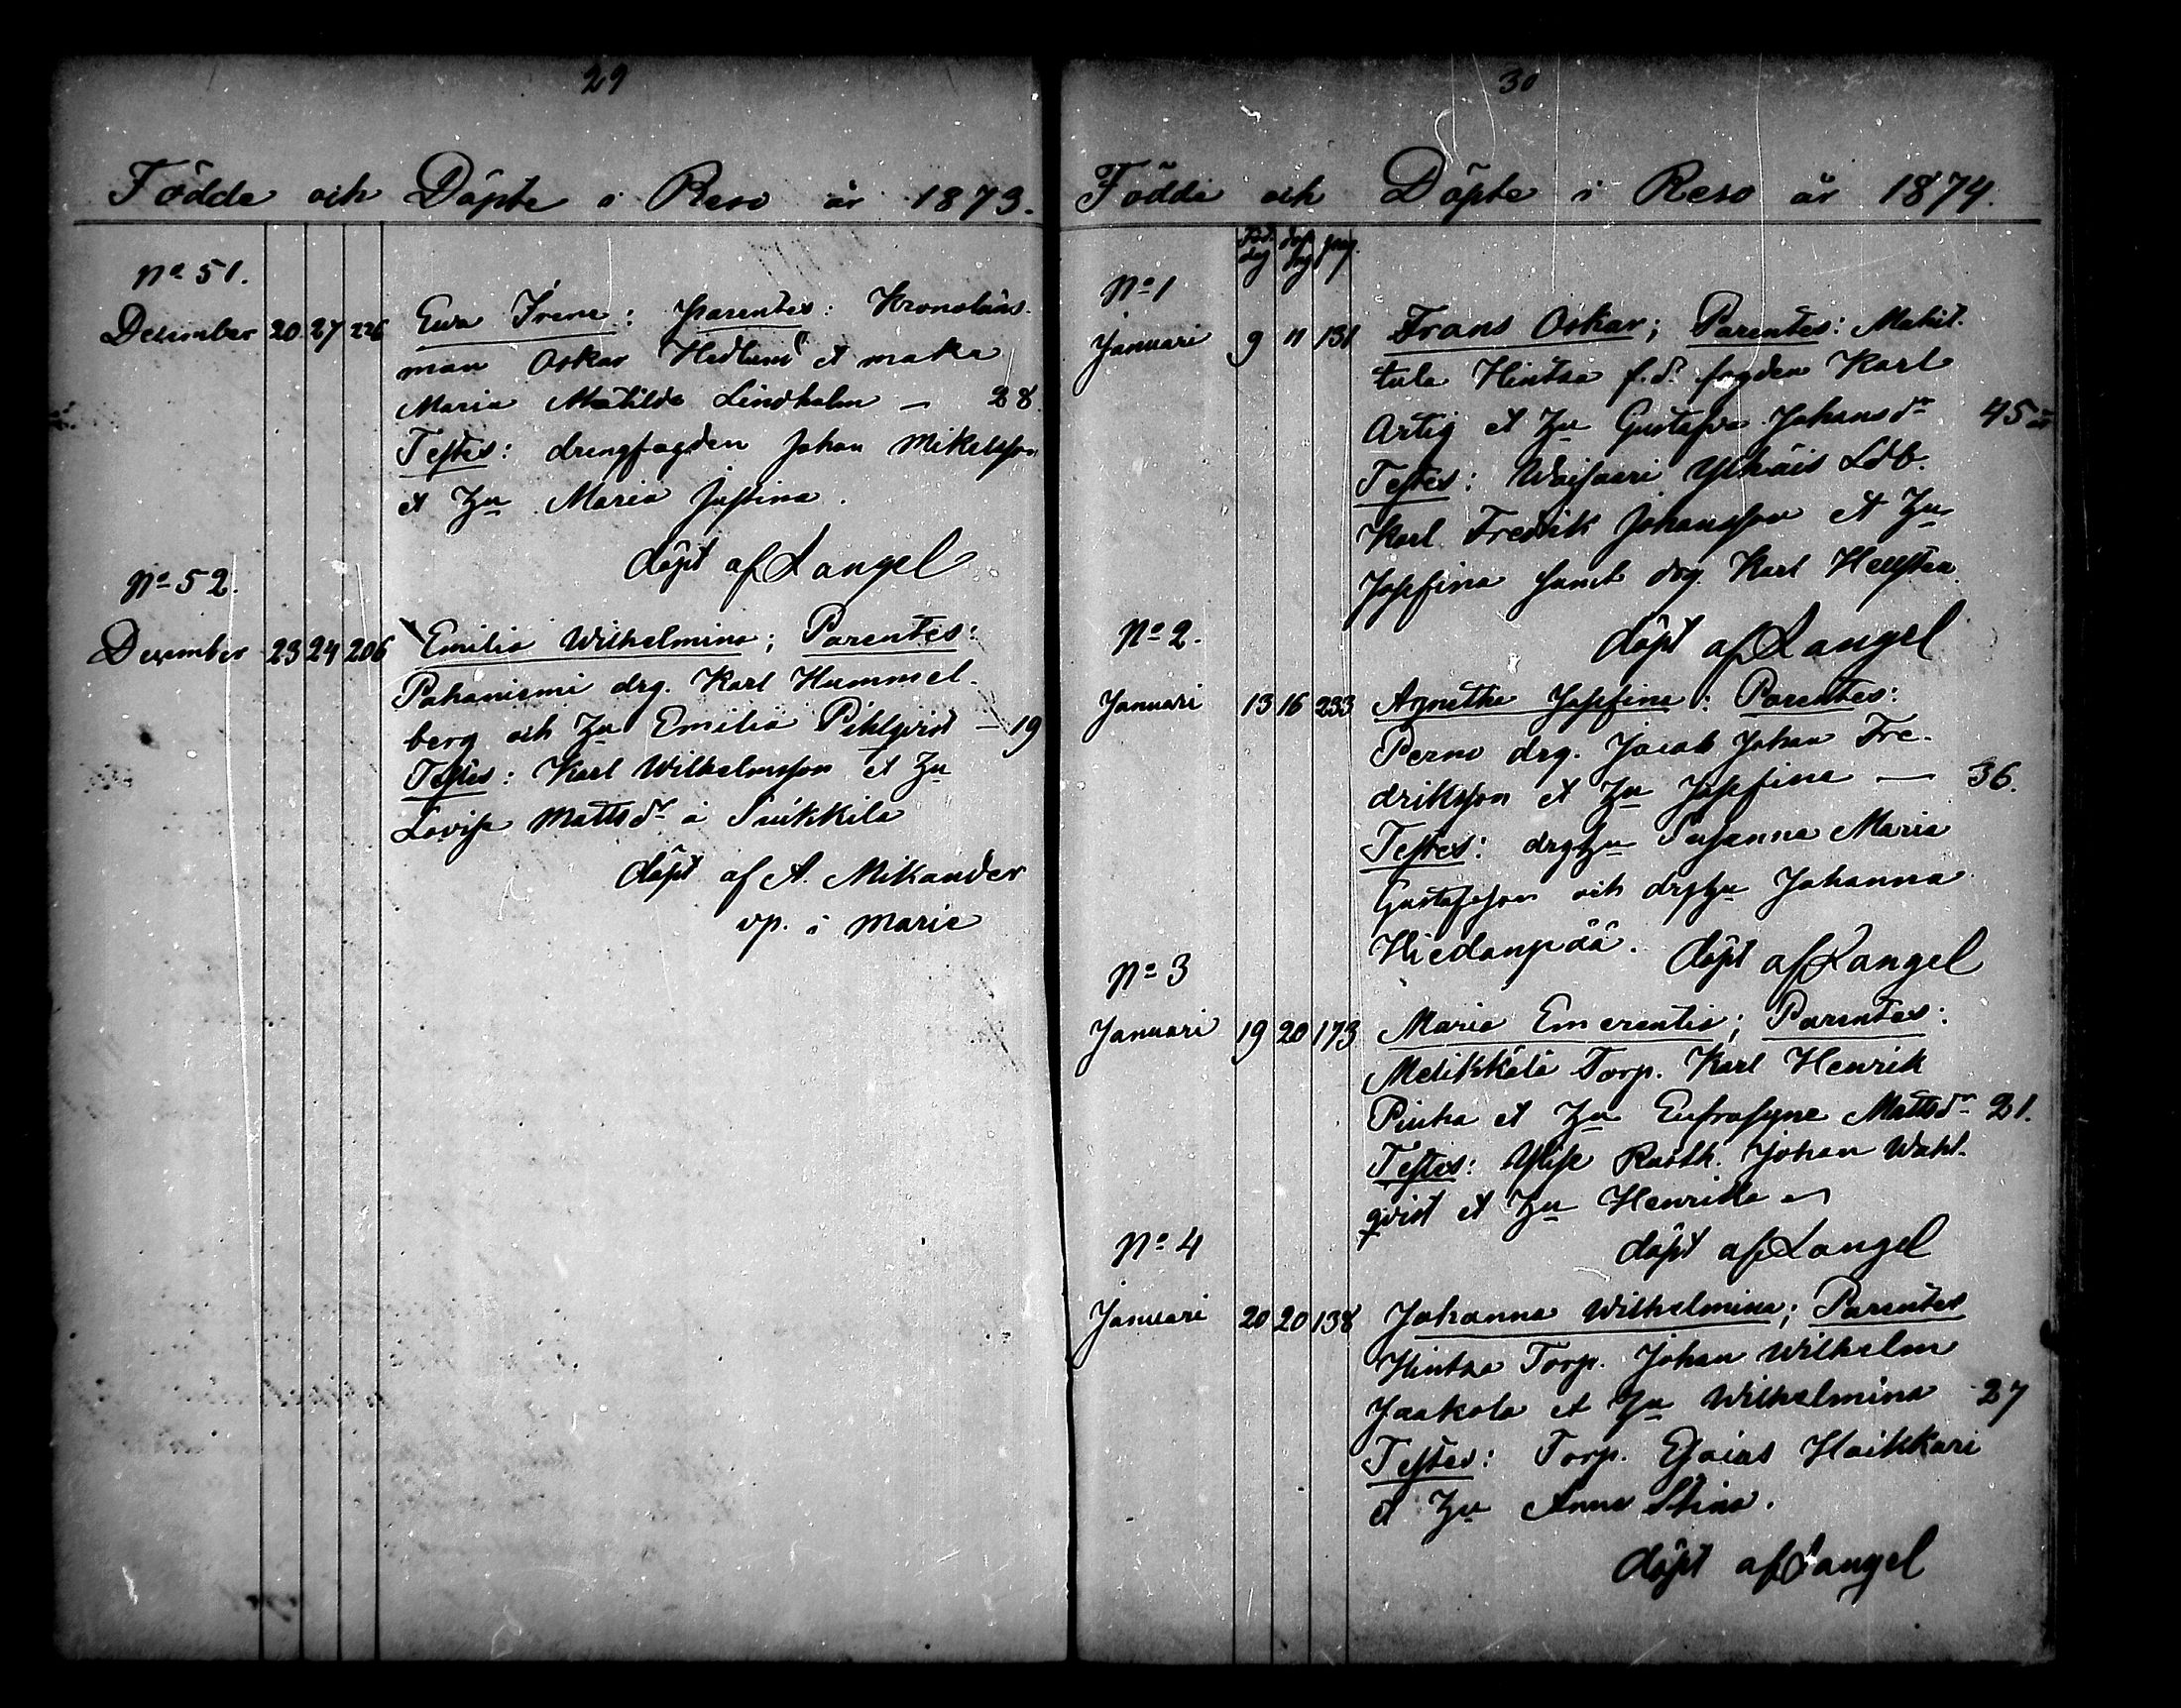 29
Födde och Döpte i Reso år 1873.
No 51.
December 20 27 226 Ewa Irene: Parentes: Kronoläns-
man Oskar Hedlund et maka
Maria Matilda Lindholm — 28.
Testes: drengfogden Johan Mikelsson
et hu Maria Justina.
döpt af Langel
No 52.
December 23 24 206 Emilia Wilhelmina; Parentes:
Pahaniemi drg. Karl Hummel-
berg och hu Emilia Pihlqvist — 19
Testes: Karl Wilhelmsson et hu
Lovisa Mattsdr å Suikkila
döpt af A. Mikander
vp. i Marie
30
Födde och Döpte i Reso år 1874.
Föd. dag dop dag pag.
No 1
Januari 9 11 131 Frans Oskar; Parentes: Mahit-
tula Hintsa f.d. fogden Karl
Artig et hu Gustafva Johansdr 45 år
Testes: Ylhäis Ldb.
Karl Fredrik Johansson et hu
Josefina samt drg. Karl Hellsten
döpt af Langel
No 2.
Januari 13 16 233 Agnetha Josefina: Parentes:
Perno drg. Jacob Johan Fre-
driksson et hu Josefina — 36.
Testes: drghu Susanna Maria
Gustafsson och drghu Johanna
Hiedanpää. döpt af Langel
No 3
Januari 19 20 173 Maria Emerentia; Parentes:
Metikkälä Torp. Karl Henrik
Piuha et hu Eufrosyne Mattsdr 21.
Testes: Rusth. Johan Wahl-
qvist et hu Henrika
döpt af Langel
No 4
Januari 20 20 138 Johanna Wilhelmina; Parentes
Hintsa Torp. Johan Wilhelm
Jaakola et hu Wilhelmina 27
Testes: Torp. Esaias Haikkari
et hu Anna Stina.
döpt af Langel